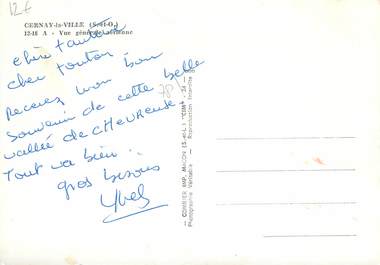 12€
CERNAY-la-VILLE (S.-et-O.)
12-18 A - Vue générale aérienne
chère tantine
cher tonton.
recevez mon bon
souvenir de cette belle
vallée de CHEVREUSE.
Tout va bien..
gros bisous
Yves
78
COMBIER IMP. MACON (S.-et-L.) "CIM"
Photographie Véritable - Reproduction Interdite